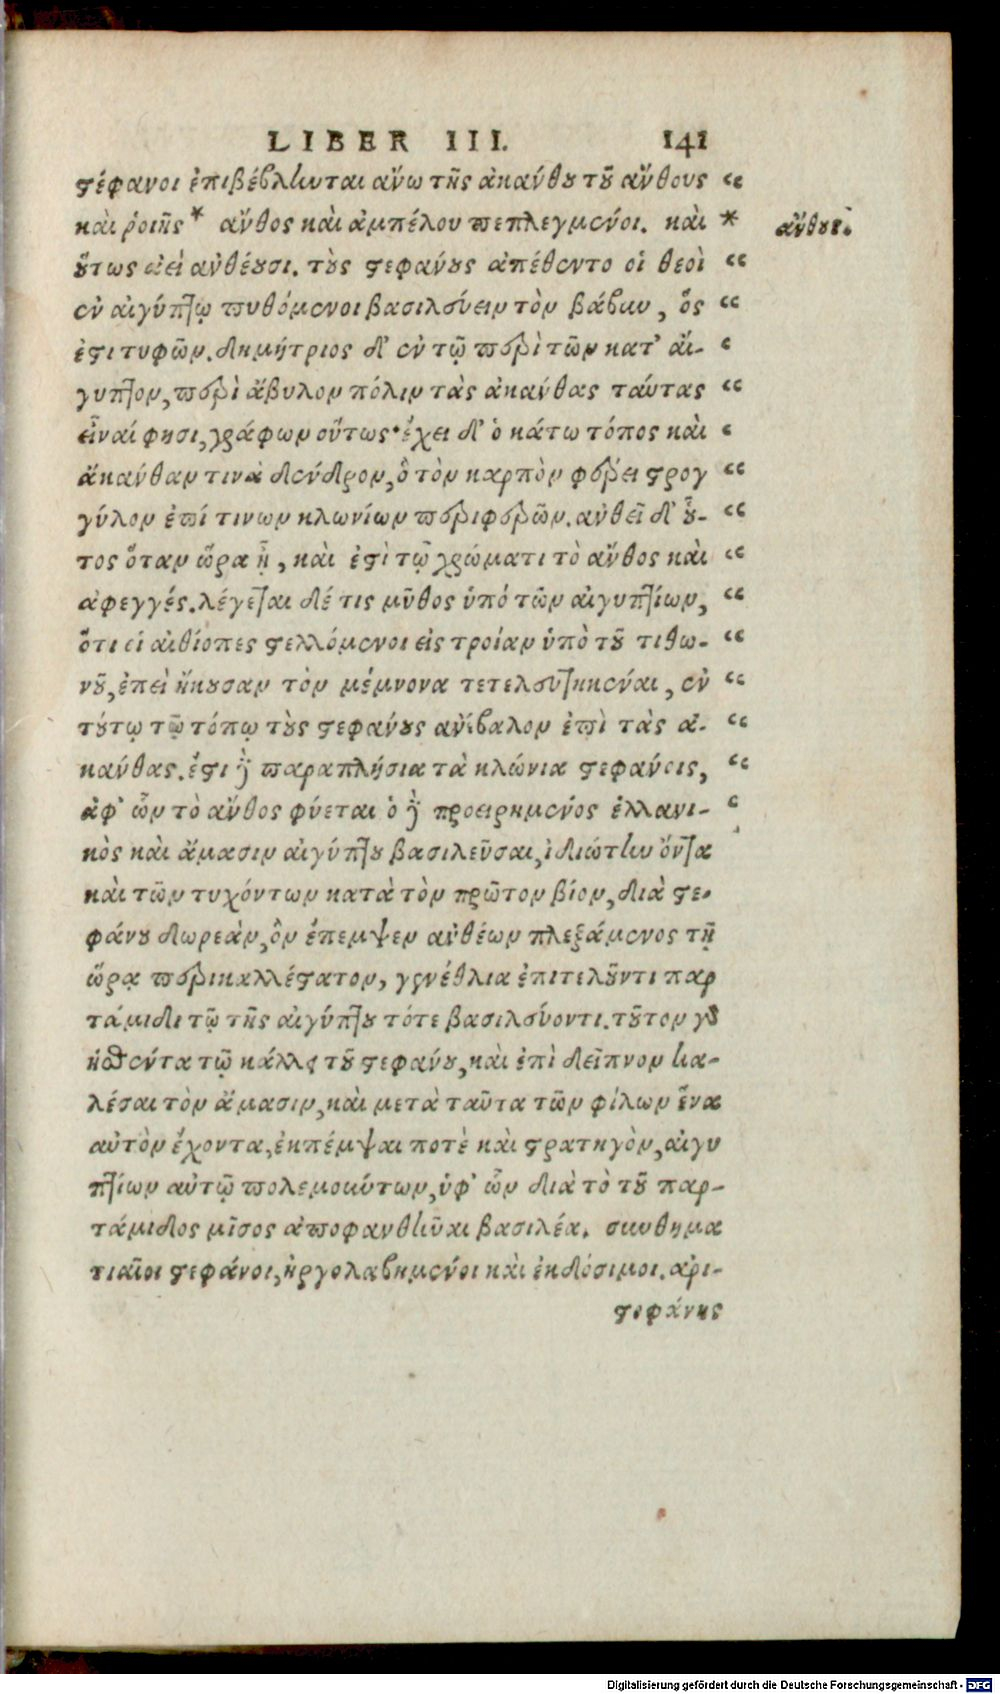 LIBER III. 141
στέφανοι ἐπιβέβληνται ἄνω τῆς ἀκάνθου τοῦ ἄνθους “
καὶ ῥοιῆς* ἄνθος καὶ ἀμπέλου πεπλεγμένοι. καὶ * ἄνθους.
οὕτως ἀεὶ ἀνθέουσι. τοὺς στεφάνους ἀπέθεντο οἱ θεοὶ “
ἐν αἰγύπτῳ πυθόμενοι βασιλεύειν τὸν βάβην, ὅς “
ἐστι τυφῶν. δημήτριος δ' ἐν τῷ περὶ τῶν κατ' αἴ- ‘
γυπτον, περὶ ἄβυλον πόλιν τὰς ἀκάνθας ταύτας “
εἶναί φησι, γράφων οὕτως· ἔχει δ' ὁ κάτω τόπος καὶ ‘
ἄκανθαν τινὰ δένδρον, ὃ τὸν καρπὸν φέρει στρογ “
γύλον ἐπί τινων κλωνίων περιφερῶν. ἀνθεῖ δ' οὗ- “
τος ὅταν ὥρα ᾖ, καὶ ἐστὶ τῷ χρώματι τὸ ἄνθος καὶ “
ἀφεγγές. λέγεται δέ τις μῦθος ὑπό τῶν αἰγυπτίων, “
ὅτι οἱ αἰθίοπες στελλόμενοι εἰς τροίαν ὑπὸ τοῦ τιθω- “
νοῦ, ἐπεὶ ἤκουσαν τὸν μέμνονα τετελευτηκέναι, ἐν “
τούτῳ τῷ τόπῳ τοὺς στεφάνους ἀνέβαλον ἐπὶ τὰς ἀ- “
κάνθας. ἔστι δὲ παραπλήσια τὰ κλώνια στεφάνοις, “
ἀφ' ὧν τὸ ἄνθος φύεται ὁ δὲ προειρημένος ἑλλανι- ‘
κὸς καὶ ἄμασιν αἰγύπτου βασιλεῦσαι, ἰδιώτην ὄντα
καὶ τῶν τυχόντων κατὰ τὸν πρῶτον βίον, διὰ στε-
φάνου δωρεὰν, ὃν ἔπεμψεν ἀνθέων πλεξάμενος τῇ
ὥρᾳ περικαλλέστατον, γενέθλια ἐπιτελοῦντι παρ
τάμιδι τῷ τῆς αἰγύπτου τότε βασιλεύοντι. τοῦτον γὰρ
ἡσθέντα τῷ κάλλει τοῦ στεφάνου, καὶ ἐπὶ δεῖπνον κα-
λέσαι τὸν ἄμασιν, καὶ μετὰ ταῦτα τῶν φίλων ἕνα
αὐτὸν ἔχοντα, ἐκπέμψαι ποτὲ καὶ στρατηγὸν, αἰγυ
πτίων αὐτῷ πολεμούντων, ὑφ' ὧν διὰ τὸ τοῦ παρ-
τάμιδος μῖσος ἀποφανθῆναι βασιλέα. συνθημα
τιαῖοι στεφάνοι, ἠργολαβημένοι καὶ ἐκδόσιμοι. ἀρι-
στοφάνης
Digitalisierung gefördert durch die Deutsche Forschungsgemeinschaft - DFG